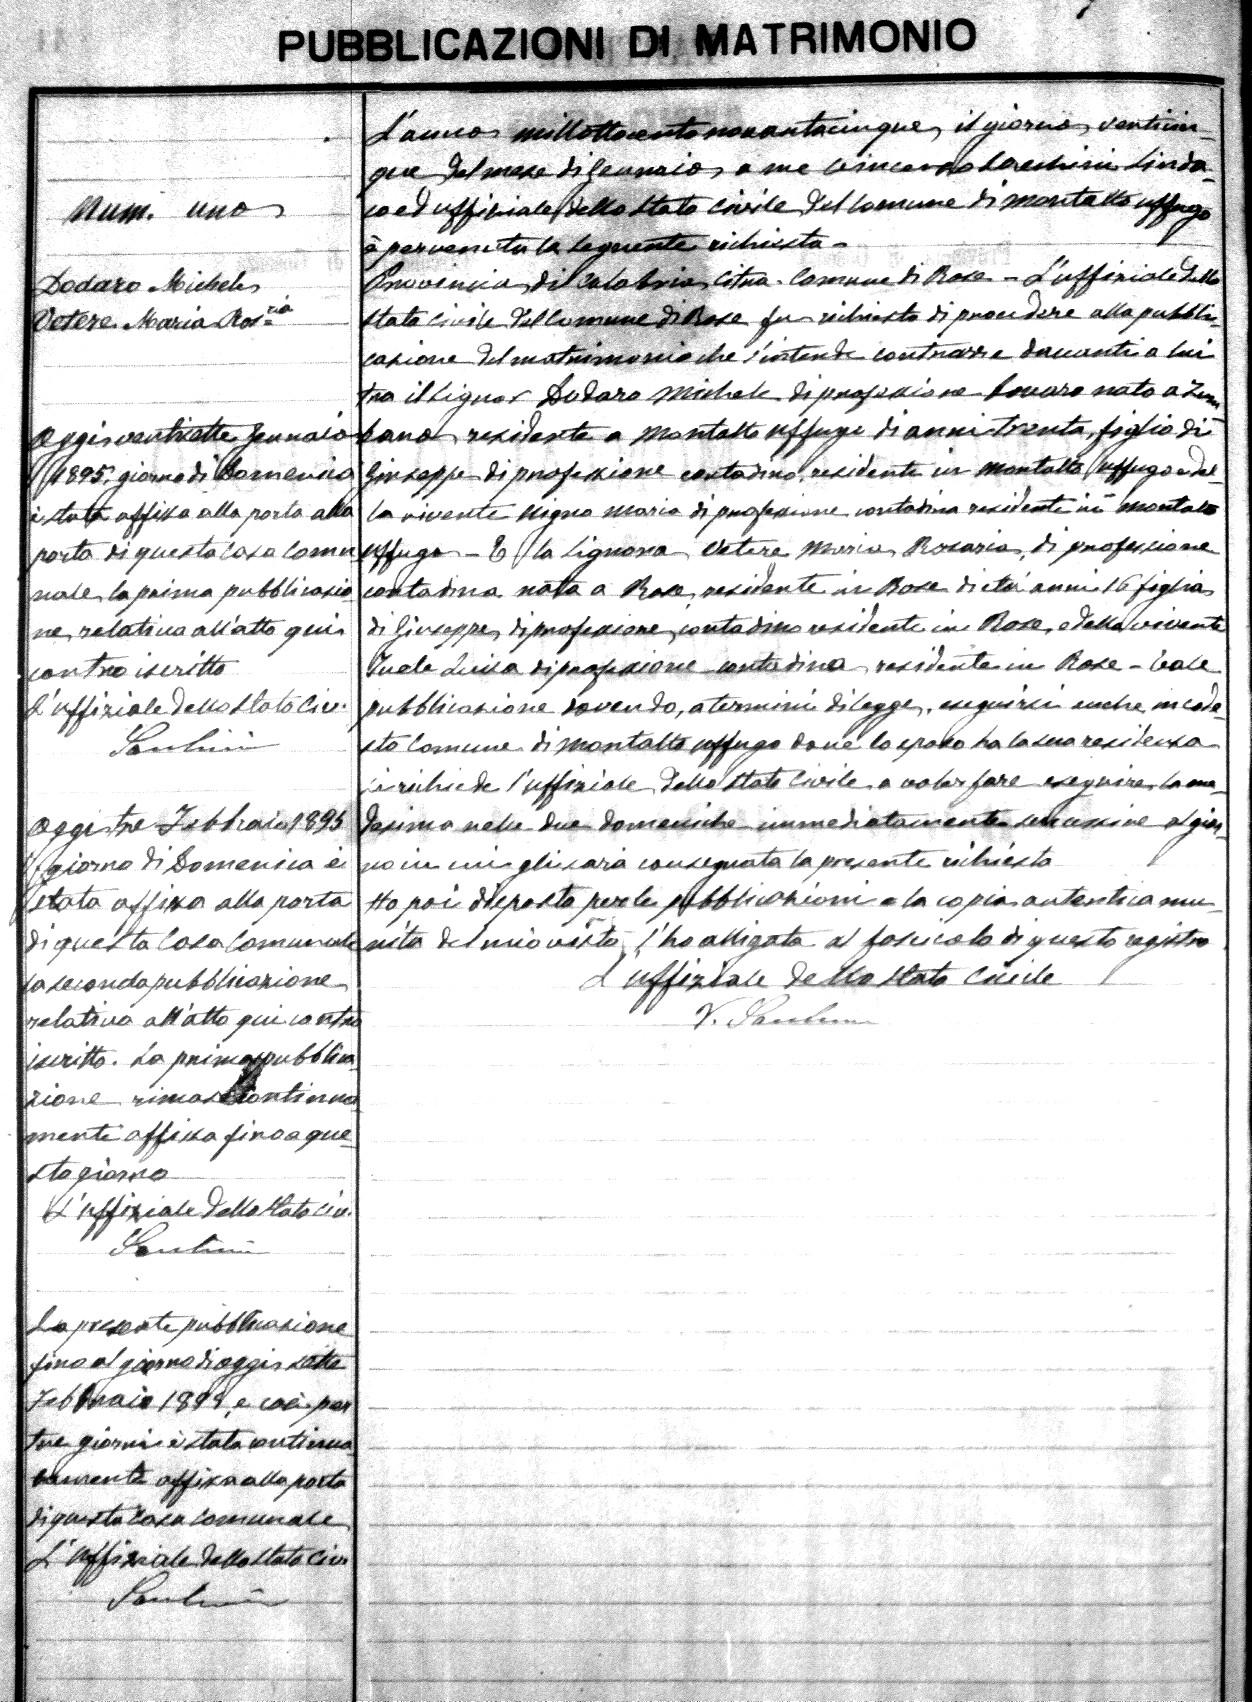 PUBBLICAZIONI DI MATRIMONIO
Num. uno
Dodaro Michele
Vetere Maria Ros.ria
Oggi ventisette Gennaio
1895, giorno di Domenica
è stata affissa alla porta alla
porta di questa Casa Comu
nale, la prima pubblicazio
ne, relativa all'atto qui
contro iscritto
L'uffiziale dello Stato Civ.
Oggi tre Febbraio 1895
giorno di Domenica è
stata affissa alla porta
di questa Casa Comunale
la seconda pubblicazione
relativa all'atto qui contro
iscritto. La prima pubblica
zione rimase continua
mente affissa fino a que
sto giorno
L'uffiziale dello Stato Civ.
La presente pubblicazione
fino al giorno di oggi sette
Febbraio 1895, e così per
tre giorni è stata continua
tamente affissa alla porta
di questa Casa Comunale
L'uffiziale dello Stato Civ.
L'anno millottocentonovantacinque, il giorno venticin-
que del mese di Gennaio, a me Vincenzo Sinda-
co ed uffiziale dello Stato Civile del Comune di Montalto Uffugo
è pervenuta la seguente richiesta -
Provincia di Calabria Citra - Comune di Rose - L'uffiziale dello
Stato Civile del Comune di Rose fu richiesto di procedere alla pubbli-
cazione del matrimonio che s'intende contrarre davanti a lui
tra il Signor Dodaro Michele di professione nato a Zum
pano residente a Montalto Uffugo di anni trenta, figlio di
Giuseppe di professione contadino, residente in Montalto Uffugo e del
la vivente Maria di professione contadina residente in Montalto
Uffugo - E la Signora Vetere Maria Rosaria, di professione
contadina nata a Rose, residente in Rose di età anni 16 figlia
di Giuseppe, di professione contadino residente in Rose, e della vivente
Luisa di professione contadina residente in Rose - Tale
pubblicazione dovendo, a termini di legge, eseguirsi anche in code-
sto Comune di Montalto Uffugo dove lo sposo ha la sua residenza
si richiede l'uffiziale dello Stato Civile a voler fare eseguire la me-
desima nelle due domeniche immediatamente successive al gior-
no in cui gli sarà consegnata la presente richiesta
Ho poi disposto per le pubblicazioni e la copia autentica mu-
nita del mio visto, l'ho alligata al fascicolo di questo registro
L'uffiziale dello Stato Civile